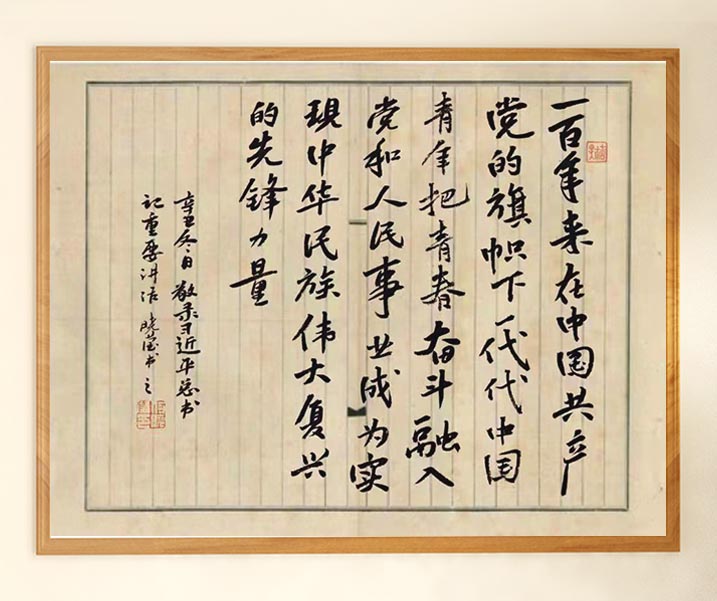 一百年来在中国共产
党的旗帜下一代代中国
青年把青春奋斗融入
党和人民事业成为实
现中华民族伟大复兴
的先锋力量
辛丑冬日敬录习近平总书
记重要讲话 晓莹书之